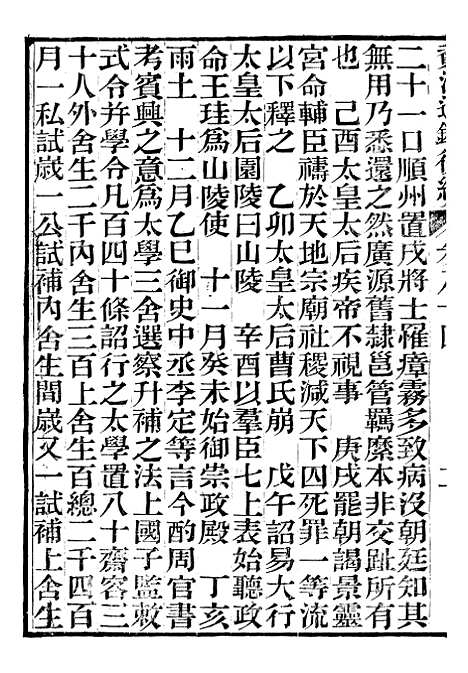 資治通鑑後編 卷八十四 二
二十一口順州置戍將士罹瘴霧多致病沒朝廷知其
無用乃悉還之然廣源舊隸邕管羈縻本非交趾所有
也　己酉太皇太后疾帝不視事　庚戌罷朝謁景靈
宮命輔臣禱於天地宗廟社稷減天下囚死罪一等流
以下釋之　乙卯太皇太后曹氏崩　戊午詔易大行
太皇太后園陵曰山陵　辛酉以羣臣七上表始聽政
命王珪爲山陵使　十一月癸未始御崇政殿　丁亥
雨土　十二月乙巳御史中丞李定等言今酌周官書
考賓興之意爲太學三舍選察升補之法上國子監敕
式令并學令凡百四十條詔行之太學置八十齋容三
十人外舍生二千內舍生三百上舍生百總二千四百
月一私試歲一公試補內舍生間歲又一試補上舍生